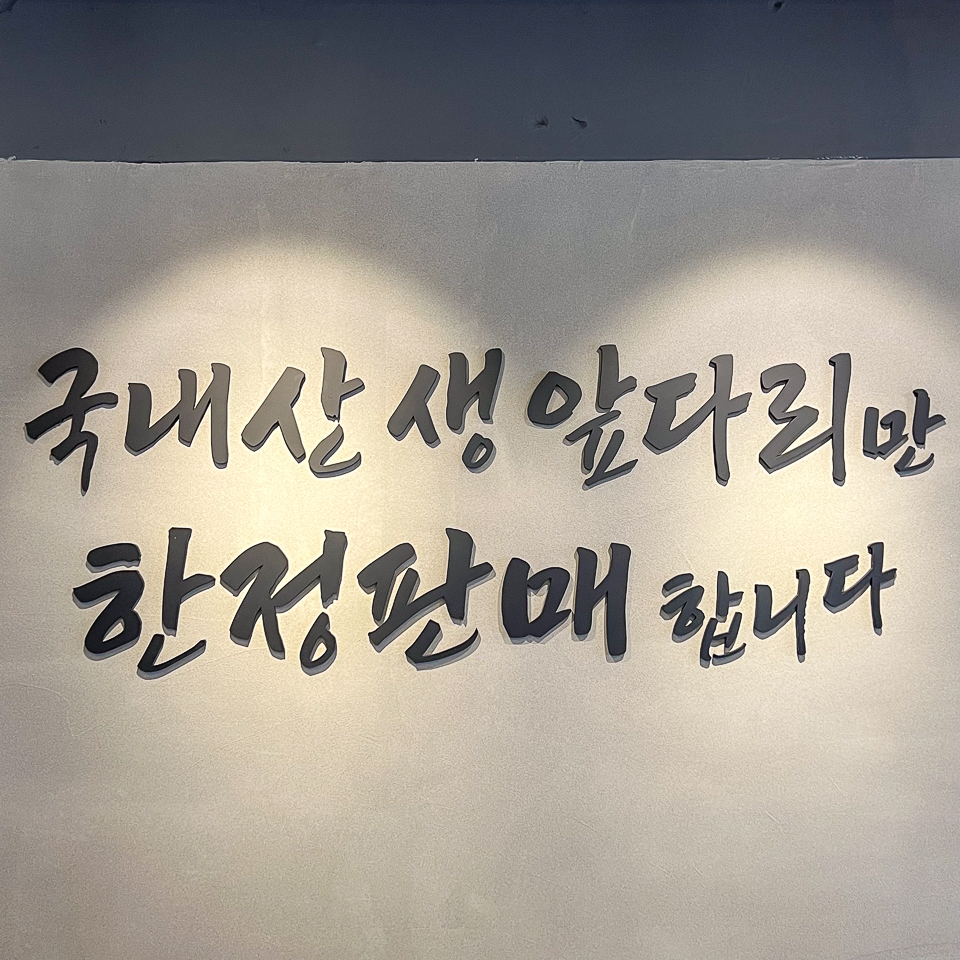 국내산 생 앞다리만
한정판매 합니다